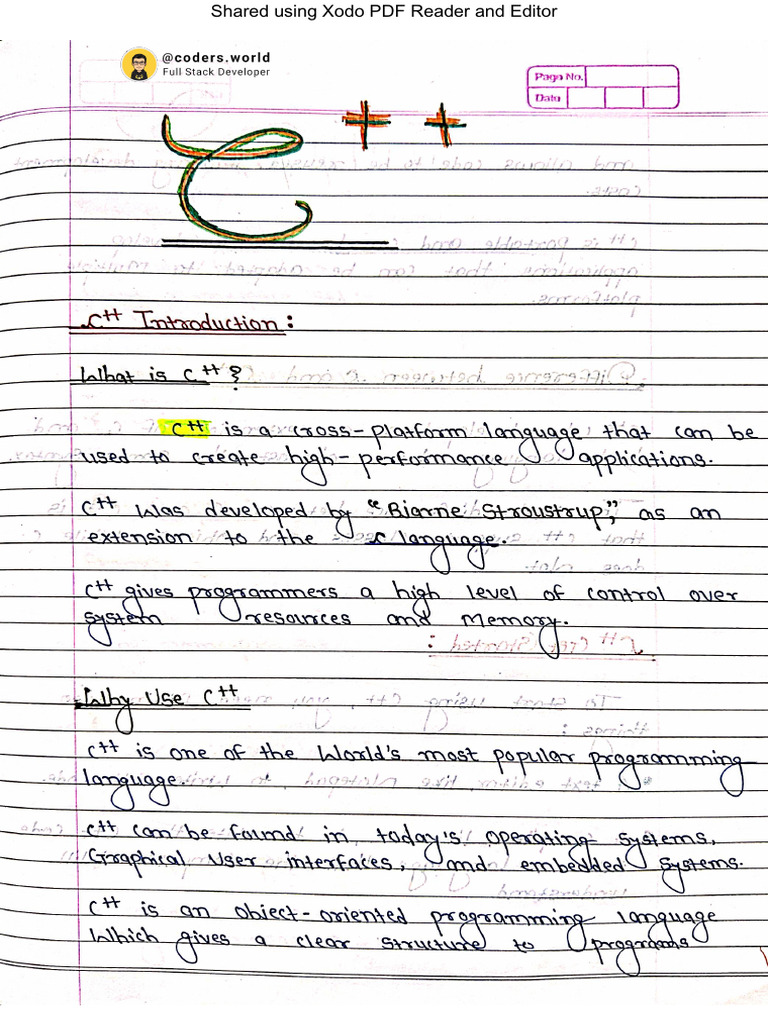 Shared using Xodo PDF Reader and Editor
@coders.world
Full Stack Developer
Page No.
Date
C++
C++ Introduction :
What is C++ ?
C++ is a cross-platform language that can be
used to create high-performance applications.
C++ was developed by "Biarne Stroustrup", as an
extension to the C language.
C++ gives programmers a high level of control over
system resources and memory.
Why Use C++
C++ is one of the World's most popular programming
language.
C++ can be found in today's operating systems,
Graphical User interfaces, and embedded systems.
C++ is an object-oriented programming language
Which gives a clear structure to programs